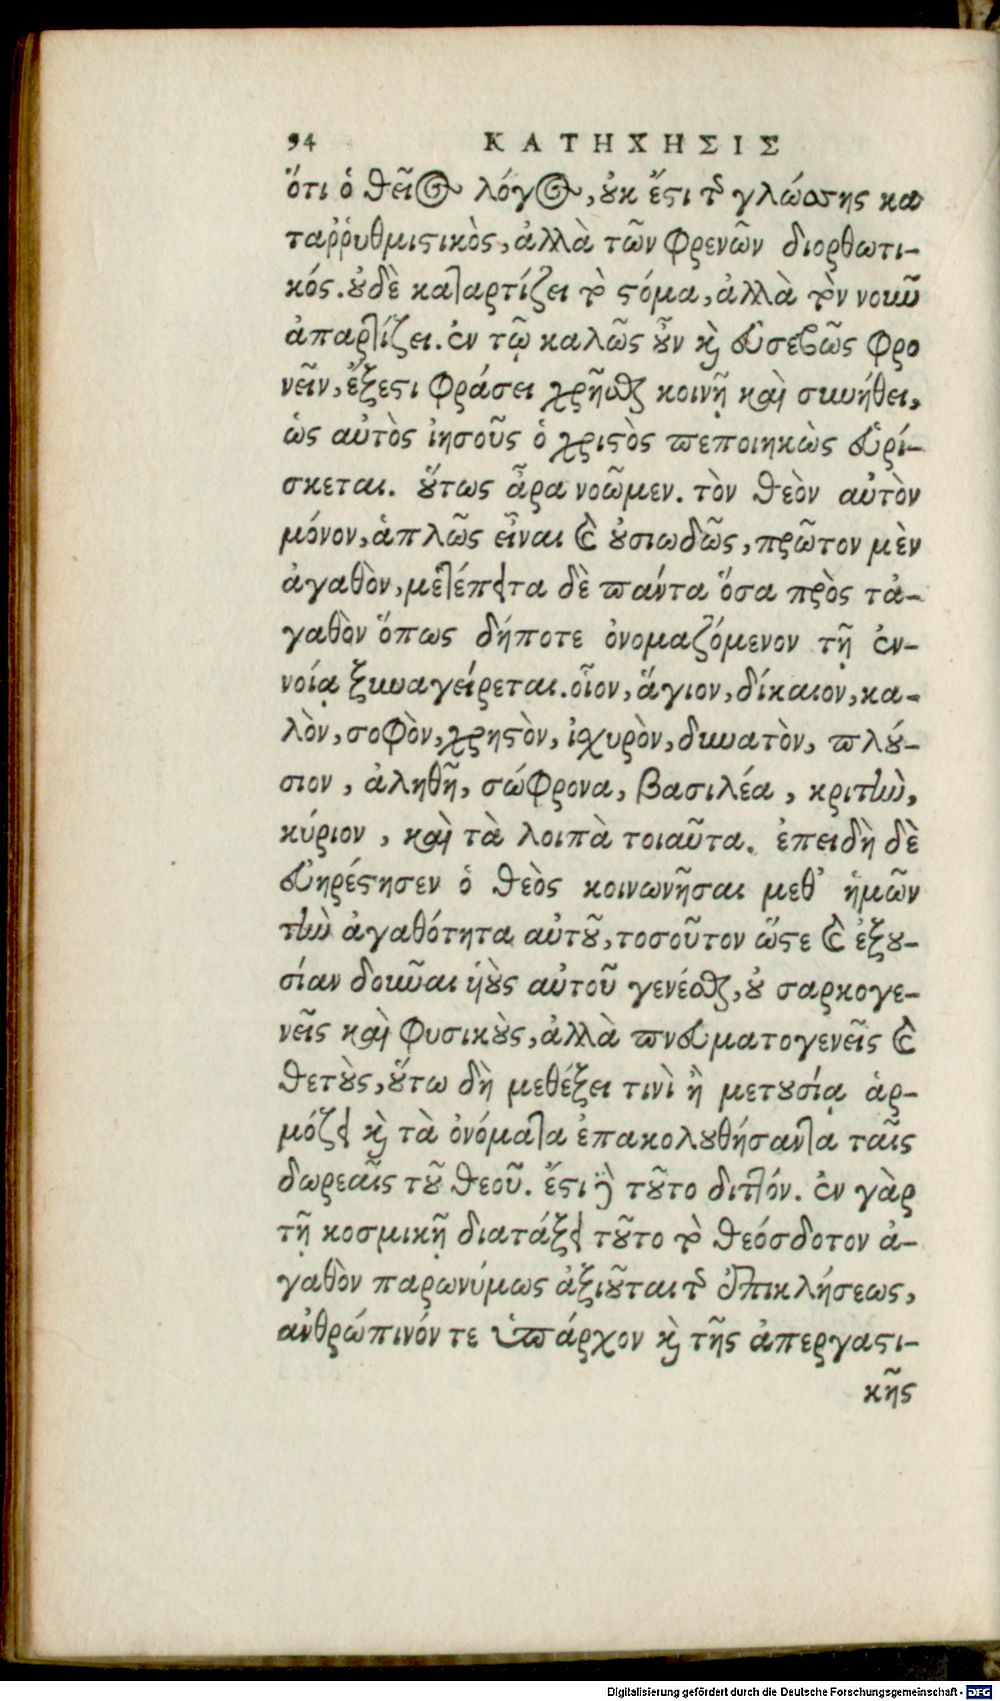 94 ΚΑΤΗΧΗΣΙΣ
ὅτι ὁ θεῖος λόγος, οὐκ ἔστι τῆς γλώσσης κα
ταῤῥυθμιστικὸς, ἀλλὰ τῶν φρενῶν διορθωτι-
κός. οὐδὲ καταρτίζει τὸ στόμα, ἀλλὰ τὸν νοῦν
ἀπαρτίζει. ἐν τῷ καλῶς οὖν καὶ εὐσεβῶς φρο
νεῖν, ἔξεστι φράσει χρῆσθαι κοινῇ καὶ συνήθει,
ὡς αὐτὸς ἰησοῦς ὁ χριστὸς πεποιηκὼς εὑρί-
σκεται. οὕτως ἆρα νοῶμεν. τὸν θεὸν αὐτὸν
μόνον, ἁπλῶς εἶναι καὶ οὐσιωδῶς, πρῶτον μὲν
ἀγαθὸν, μετέπειτα δὲ πάντα ὅσα πρὸς τἀ-
γαθὸν ὅπως δήποτε ὀνομαζόμενον τῇ ἐν-
νοίᾳ ξυναγείρεται. οἷον, ἅγιον, δίκαιον, κα-
λὸν, σοφὸν, χρηστὸν, ἰσχυρὸν, δυνατὸν, πλού-
σιον, ἀληθῆ, σώφρονα, βασιλέα, κριτὴν,
κύριον, καὶ τὰ λοιπὰ τοιαῦτα. ἐπειδὴ δὲ
εὐηρέστησεν ὁ θεὸς κοινωνῆσαι μεθ' ἡμῶν
τὴν ἀγαθότητα αὐτοῦ, τοσοῦτον ὥστε καὶ ἐξου-
σίαν δοῦναι υἱοὺς αὐτοῦ γενέσθαι, οὐ σαρκογε-
νεῖς καὶ φυσικοὺς, ἀλλὰ πνευματογενεῖς καὶ
θετοὺς, οὕτω δὴ μεθέξει τινὶ ἢ μετουσίᾳ ἁρ-
μόζει καὶ τὰ ὀνόματα ἐπακολουθήσαντα ταῖς
δωρεαῖς τοῦ θεοῦ. ἔστι δὲ τοῦτο διττόν. ἐν γὰρ
τῇ κοσμικῇ διατάξει τοῦτο τὸ θεόσδοτον ἀ-
γαθὸν παρωνύμως ἀξιοῦται τῆς ἐπικλήσεως,
ἀνθρώπινόν τε ὑπάρχον καὶ τῆς ἀπεργαστι-
κῆς
Digitalisierung gefördert durch die Deutsche Forschungsgemeinschaft - DFG